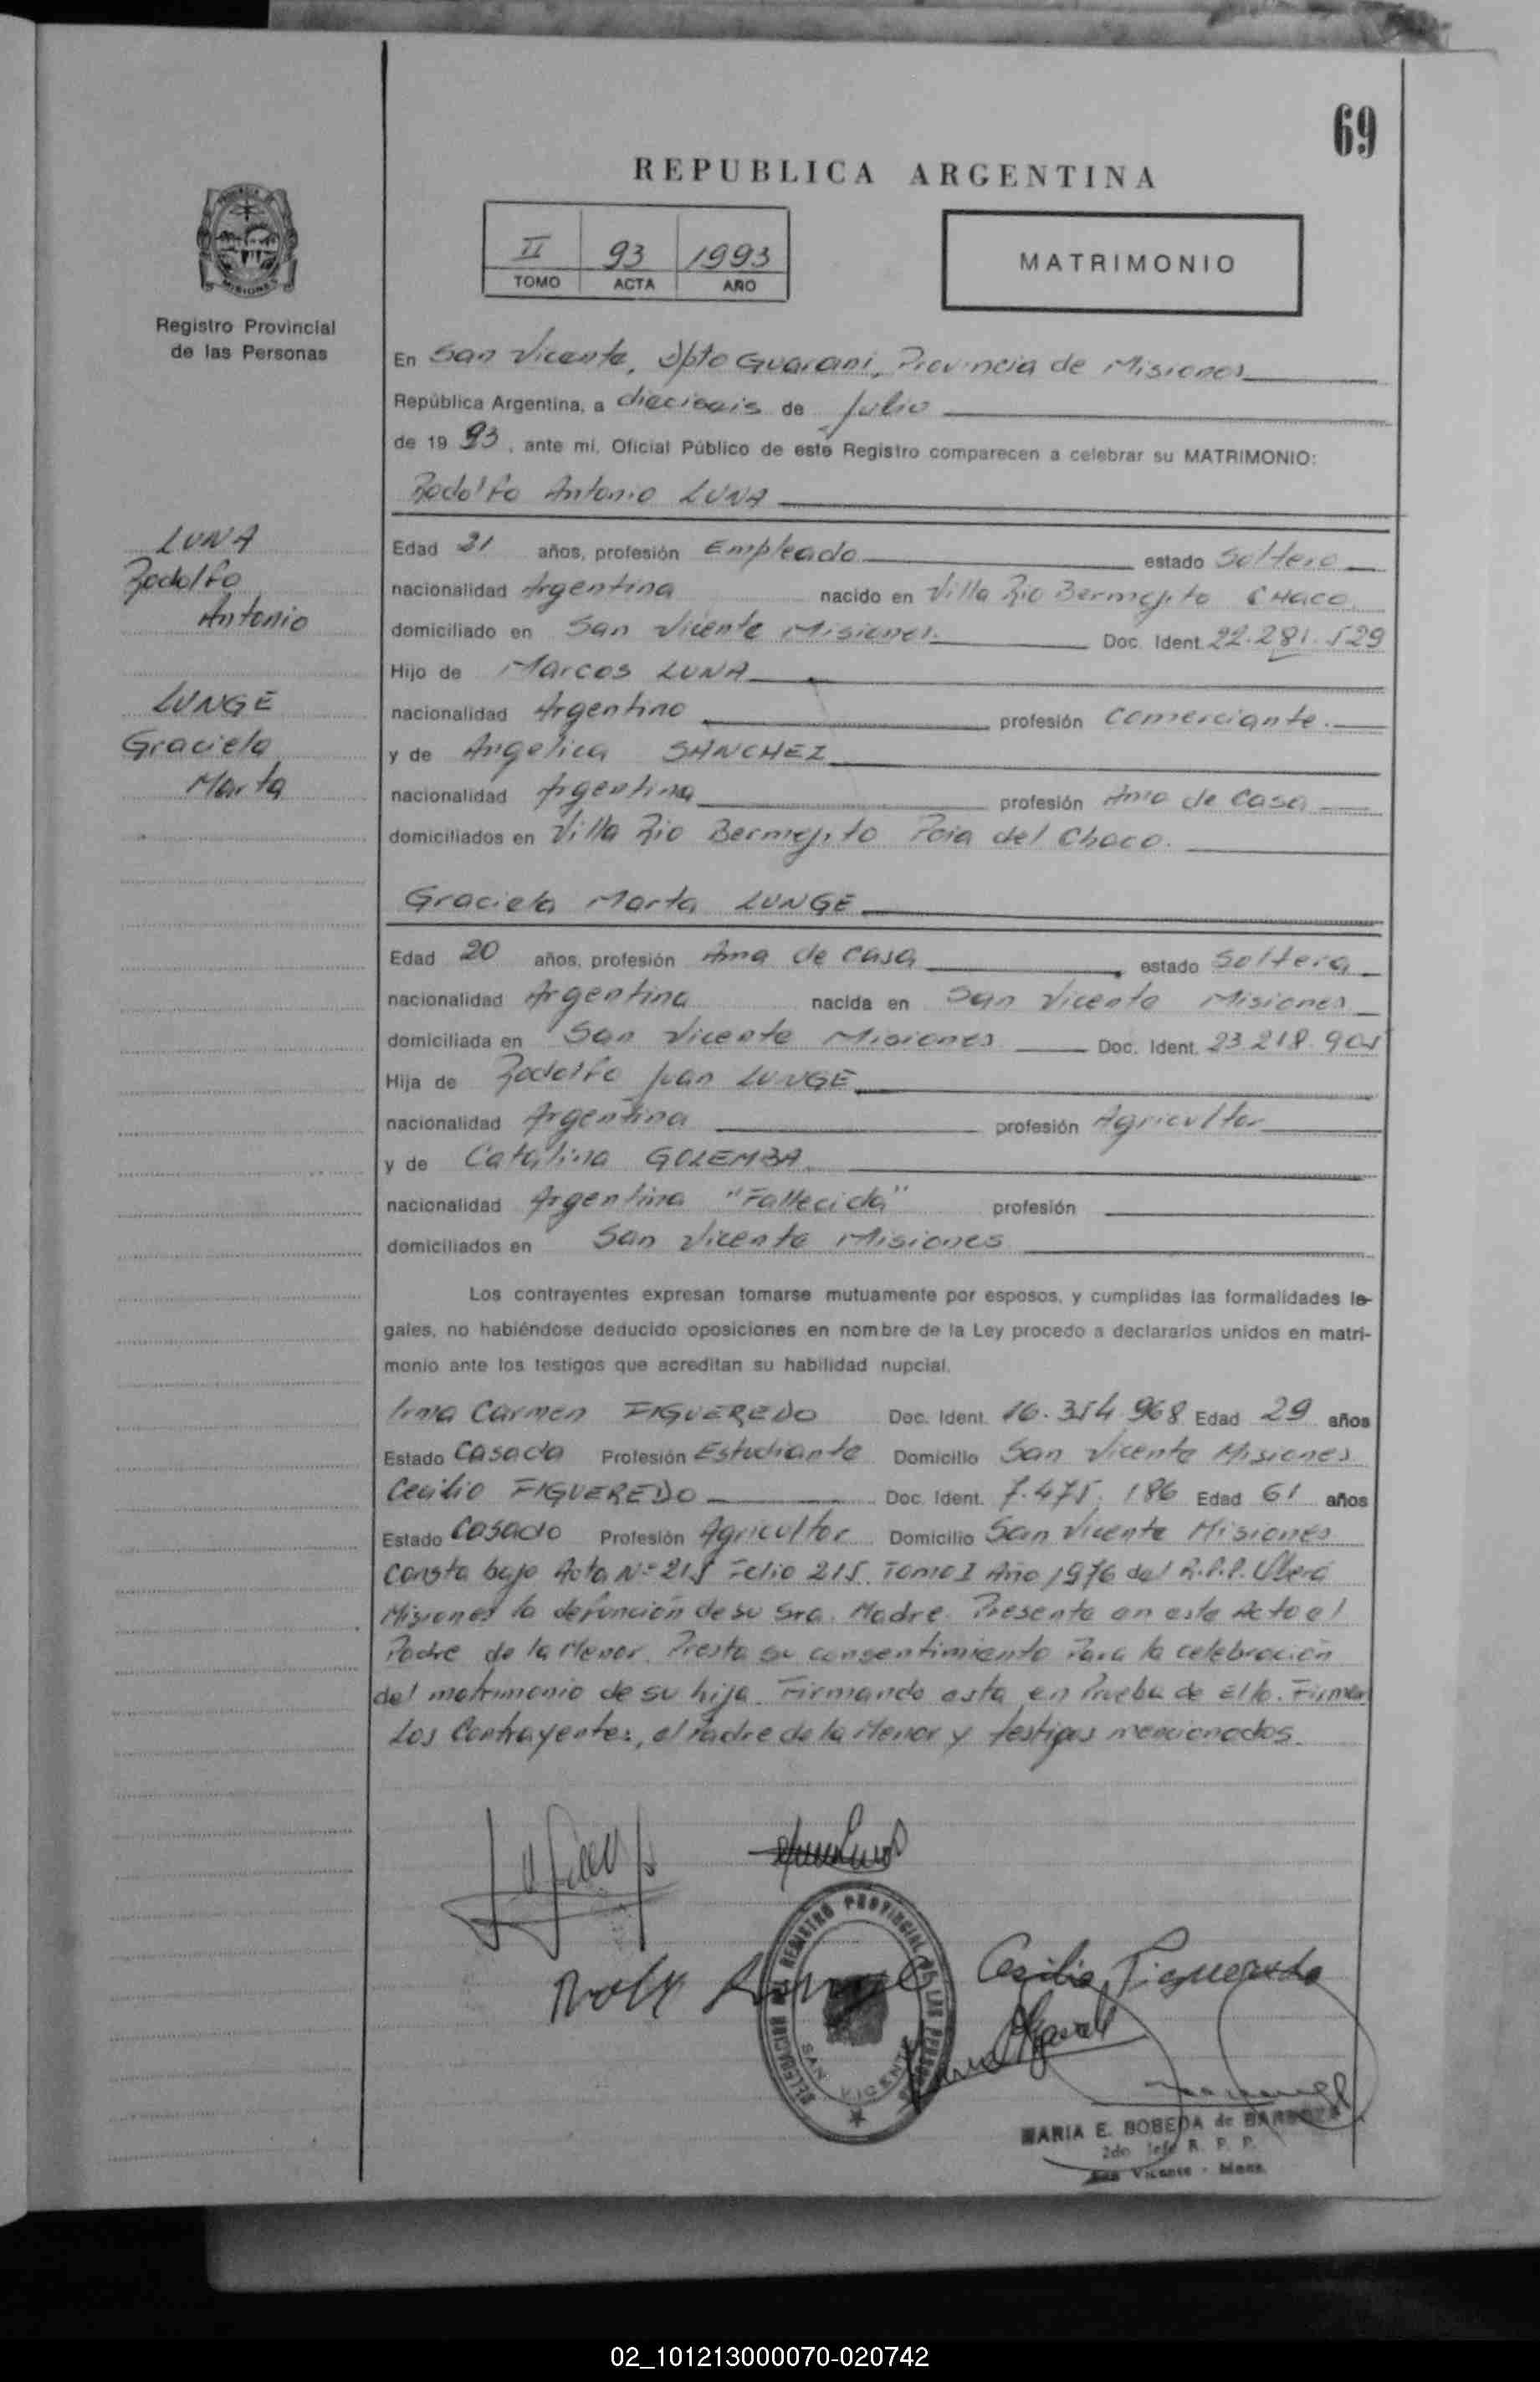 69
REPUBLICA ARGENTINA
II 93 1993
TOMO ACTA AÑO
MATRIMONIO
MISIONES
Registro Provincial
de las Personas
En San Vicente, Dpto Guarani, Provincia de Misiones
República Argentina, a dieciseis de Julio
de 19 93, ante mi, Oficial Público de este Registro comparecen a celebrar su MATRIMONIO:
Rodolfo Antonio LUNA
LUNA
Rodolfo
Antonio
LUNGE
Graciela
Marta
Edad 21 años, profesión Empleado estado Soltero
nacionalidad Argentina nacido en Villa Rio Bermejito CHACO
domiciliado en San Vicente Misiones. Doc. Ident. 22.281.529
Hijo de Marcos LUNA
nacionalidad Argentino profesión Comerciante.
y de Angelica SANCHEZ
nacionalidad Argentina profesión Ama de Casa
domiciliados en Villa Rio Bermejito Pcia del Chaco.
Graciela Marta LUNGE
Edad 20 años, profesión Ama de Casa estado Soltera
nacionalidad Argentina nacida en San Vicente Misiones
domiciliada en San Vicente Misiones Doc. Ident. 23.218.905
Hija de Rodolfo Juan LUNGE
nacionalidad Argentina profesión Agricultor
y de Catalina GOLEMBA
nacionalidad Argentina "Fallecida" profesión
domiciliados en San Vicente Misiones
Los contrayentes expresan tomarse mutuamente por esposos, y cumplidas las formalidades le-
gales, no habiéndose deducido oposiciones en nombre de la Ley procedo a declararlos unidos en matri-
monio ante los testigos que acreditan su habilidad nupcial.
Irma Carmen FIGUEREDO Doc. Ident. 16.354.968 Edad 29 años
Estado Casada Profesión Estudiante Domicilio San Vicente Misiones
Cecilio FIGUEREDO Doc. Ident. 7.475.186 Edad 61 años
Estado Casado Profesión Agricultor Domicilio San Vicente Misiones
Consta bajo Acta Nº 215 Folio 215. Tomo I Año 1976 del R.P.P. Oberá
Misiones la defunción de su Sra. Madre. Presente en este Acto el
Padre de la Menor. Presta su consentimiento Para la celebración
del matrimonio de su hija. Firmando esta en Prueba de Ello. Firman
Los Contrayentes, el Padre de la Menor y testigos mencionados.
Cecilio Figueredo
DELEGACION DEL REGISTRO PROVINCIAL DE LAS PERSONAS
SAN VICENTE
MARIA E. BOBEDA de
2do Jefe R. P. P.
San Vicente - Mnes.
02_101213000070-020742